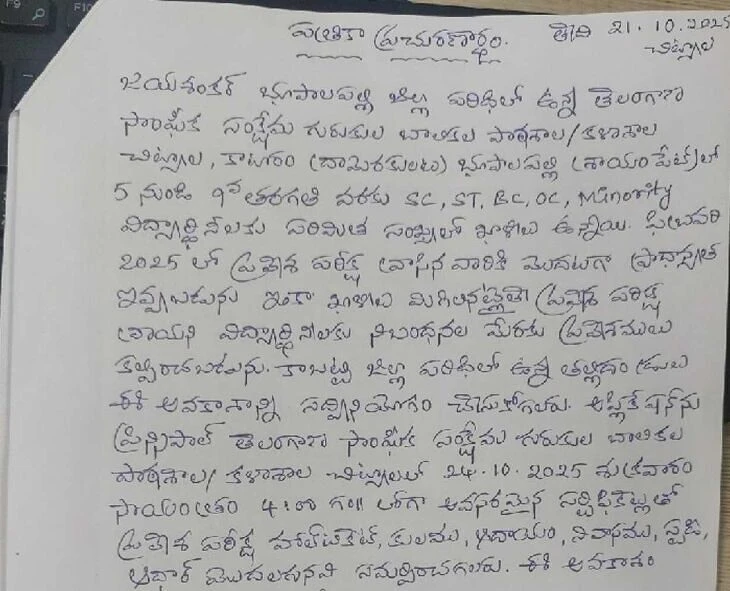 పత్రికా ప్రచురణార్థం. తేది 21.10.2025
చిట్యాల
జయశంకర్ భూపాలపల్లి జిల్లా పరిధిలో ఉన్న తెలంగాణ
సాంఘీక సంక్షేమ గురుకుల బాలికల పాఠశాల/కళాశాల
చిట్యాల, కాటారం (దామెరకుంట) భూపాలపల్లి (శాయంపేట)లో
5 నుండి 9వ తరగతి వరకు SC, ST, BC, OC, Minority
విద్యార్థినీలకు పరిమిత సంఖ్యలో ఖాళీలు ఉన్నాయి. ఫిబ్రవరి
2025 లో ప్రవేశ పరీక్ష వ్రాసిన వారికి మొదటగా ప్రాధాన్యత
ఇవ్వబడును ఇంకా ఖాళీలు మిగిలినట్లైతే ప్రవేశ పరీక్ష
వ్రాయని విద్యార్థినీలకు నిబంధనల మేరకు ప్రవేశములు
కల్పించబడును. కాబట్టి జిల్లా పరిధిలో ఉన్న తల్లిదండ్రులు
ఈ అవకాశాన్ని సద్వినియోగం చేసుకోగలరు. అప్లికేషన్‌ను
ప్రిన్సిపాల్ తెలంగాణ సాంఘీక సంక్షేమ గురుకుల బాలికల
పాఠశాల/ కళాశాల చిట్యాలలో 24.10.2025 శుక్రవారం
సాయంత్రం 4:00 గం॥ లోగా అవసరమైన సర్టిఫికెట్లతో
ప్రవేశ పరీక్ష హాల్‌టికెట్, కులము, ఆదాయం, నివాసము, స్టడీ,
ఆధార్ మొదలగునవి సమర్పించగలరు. ఈ అవకాశం